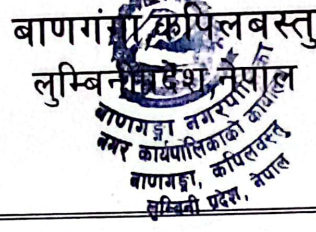 बाणगंगा, कपिलबस्तु
लुम्बिनी प्रदेश, नेपाल
बाणगङ्गा नगरपालिका
नगर कार्यपालिकाको कार्यालय
बाणगङ्गा, कपिलवस्तु
लुम्बिनी प्रदेश, नेपाल